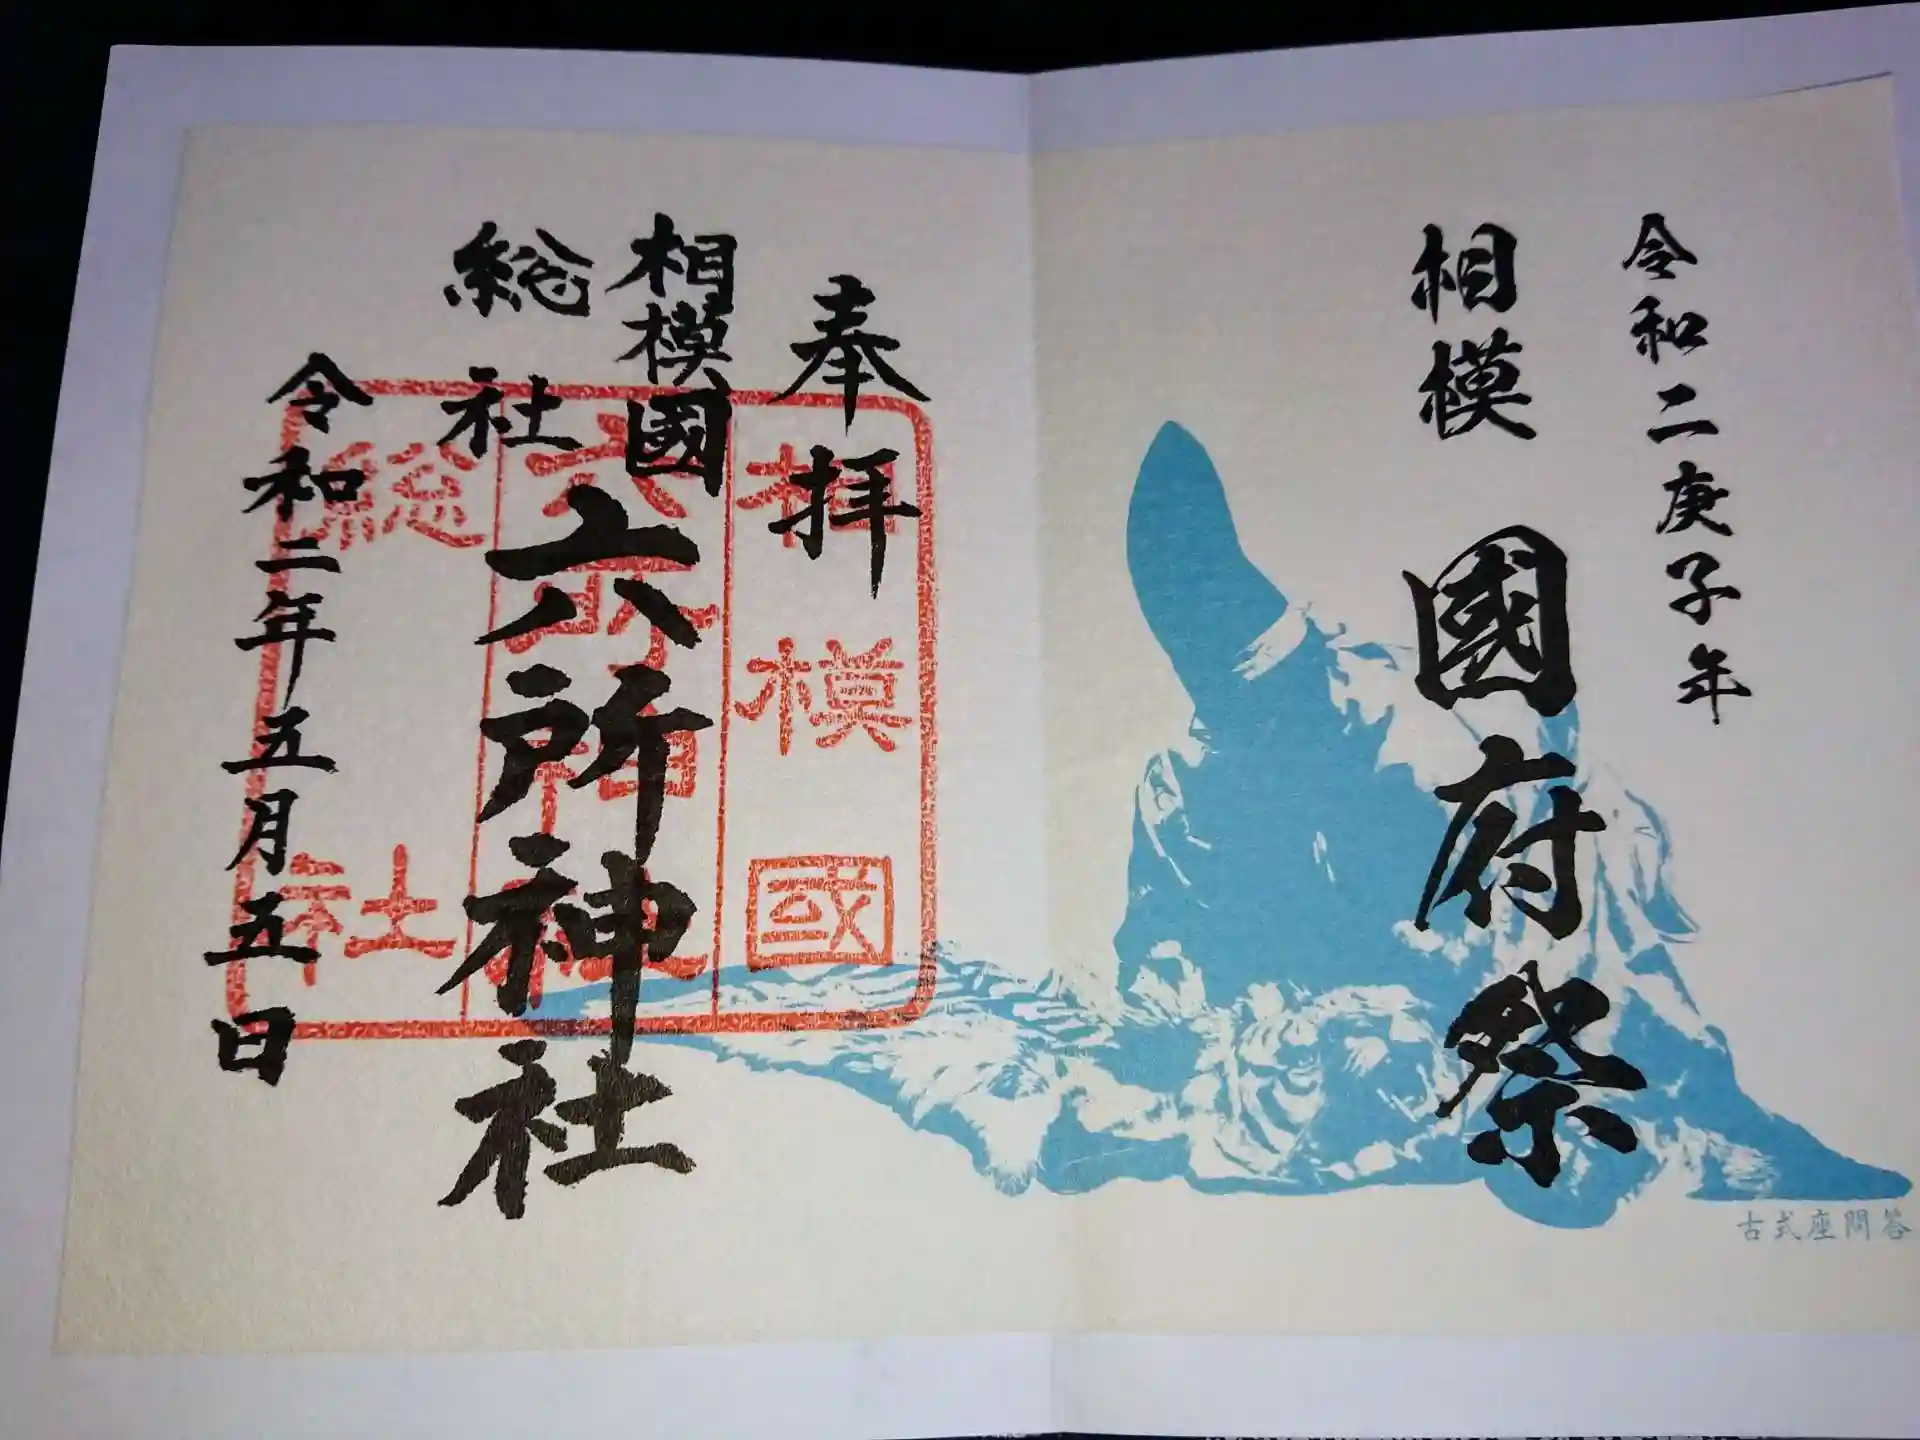 令和二庚子年
相模 國府祭
古式座問答
奉拝
相模國
総社
六所神社
令和二年五月五日
相模國
六所神社
総社